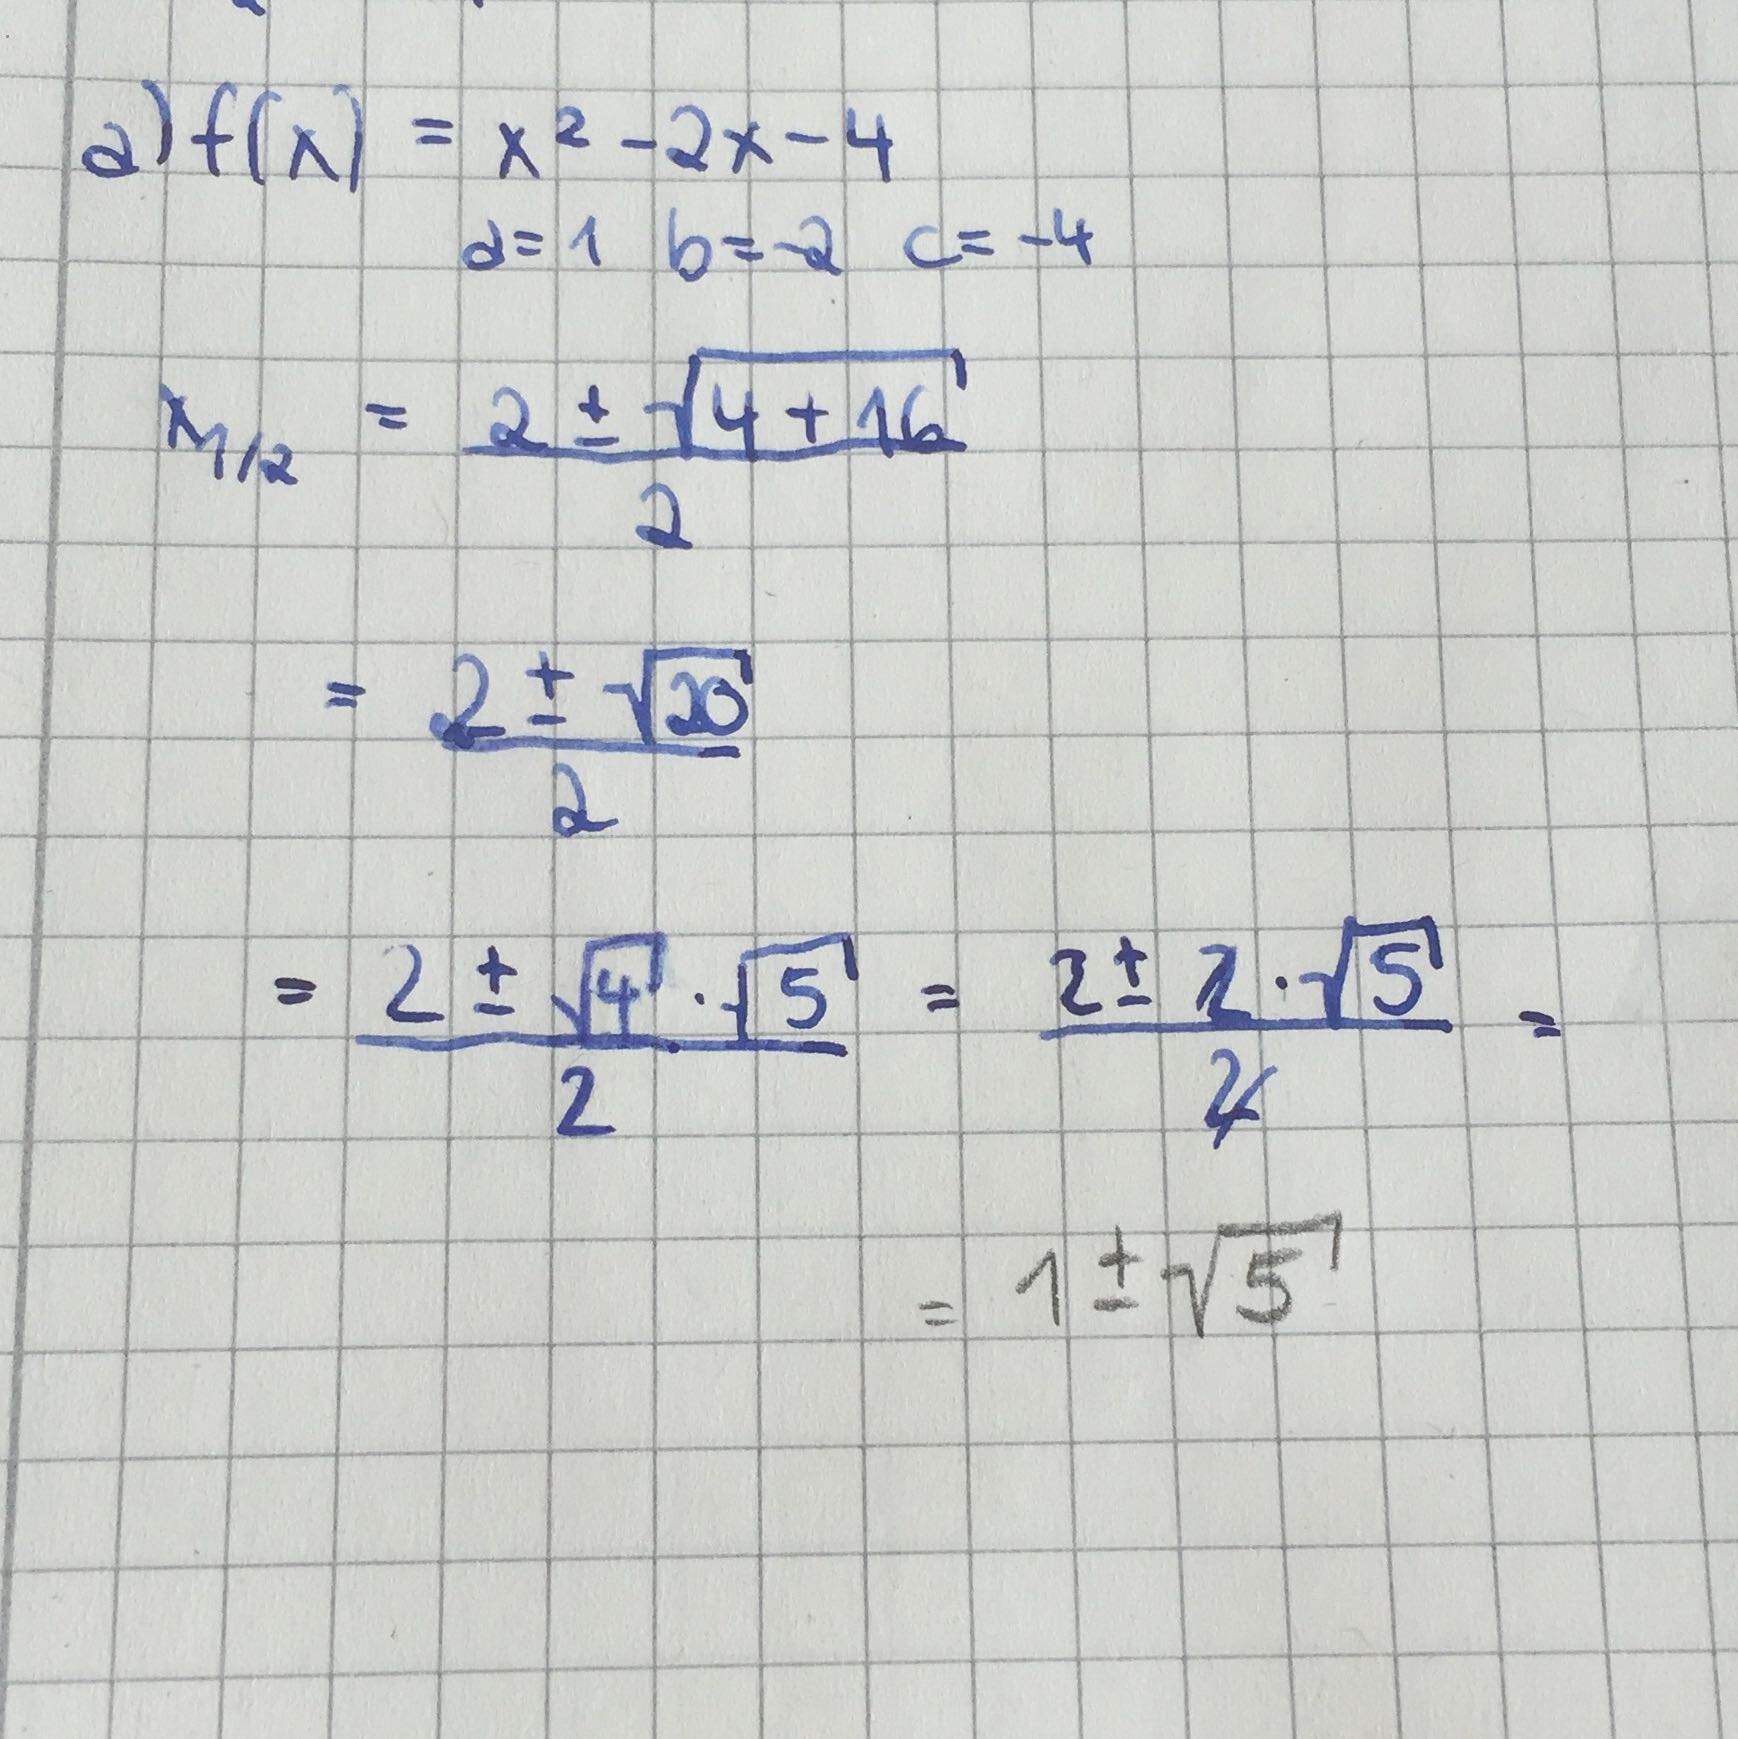 a) f(x) = x² - 2x - 4
a = 1 b = -2 c = -4
x₁/₂ = (2 ± √(4 + 16)) / 2
= (2 ± √20) / 2
= (2 ± √4 · √5) / 2 = (2 ± 2 · √5) / 2 =
= 1 ± √5